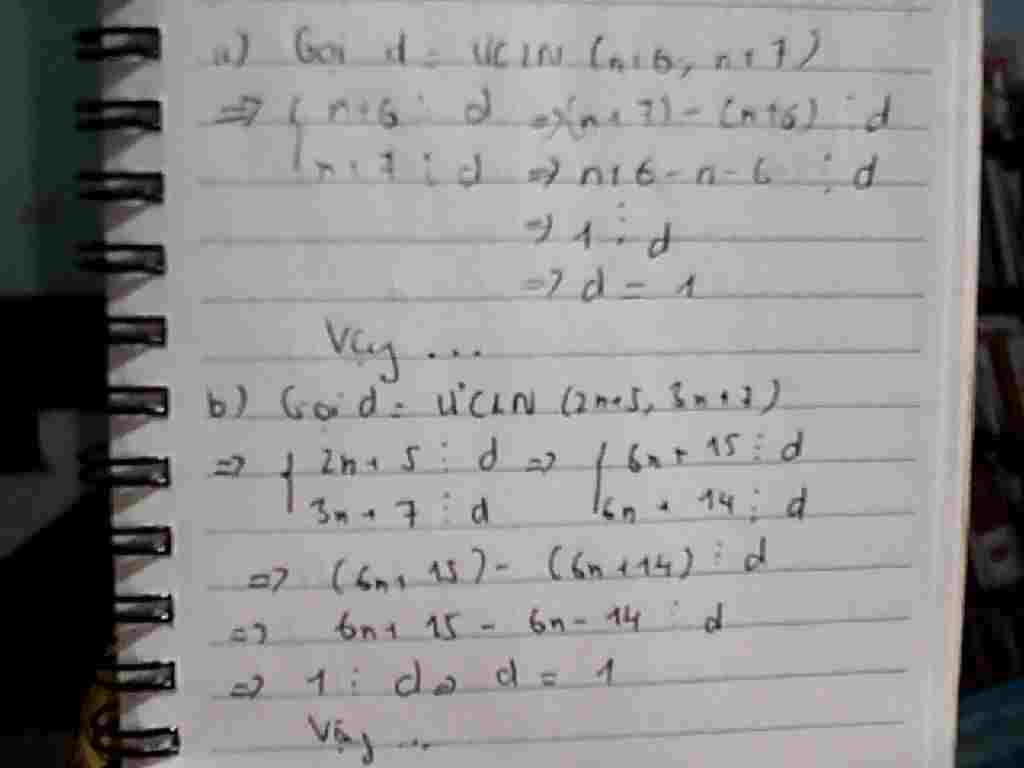 a) Gọi d = ƯCLN (n+6, n+7)
=> { n+6 ⋮ d => (n+7) - (n+6) ⋮ d
n+7 ⋮ d => n+6-n-6 ⋮ d
=> 1 ⋮ d
=> d = 1
Vậy ...
b) Gọi d = ƯCLN (2n+5, 3n+7)
=> { 2n+5 ⋮ d => { 6n+15 ⋮ d
3n+7 ⋮ d 6n+14 ⋮ d
=> (6n+15) - (6n+14) ⋮ d
=> 6n+15 - 6n-14 ⋮ d
=> 1 ⋮ d => d = 1
Vậy ...